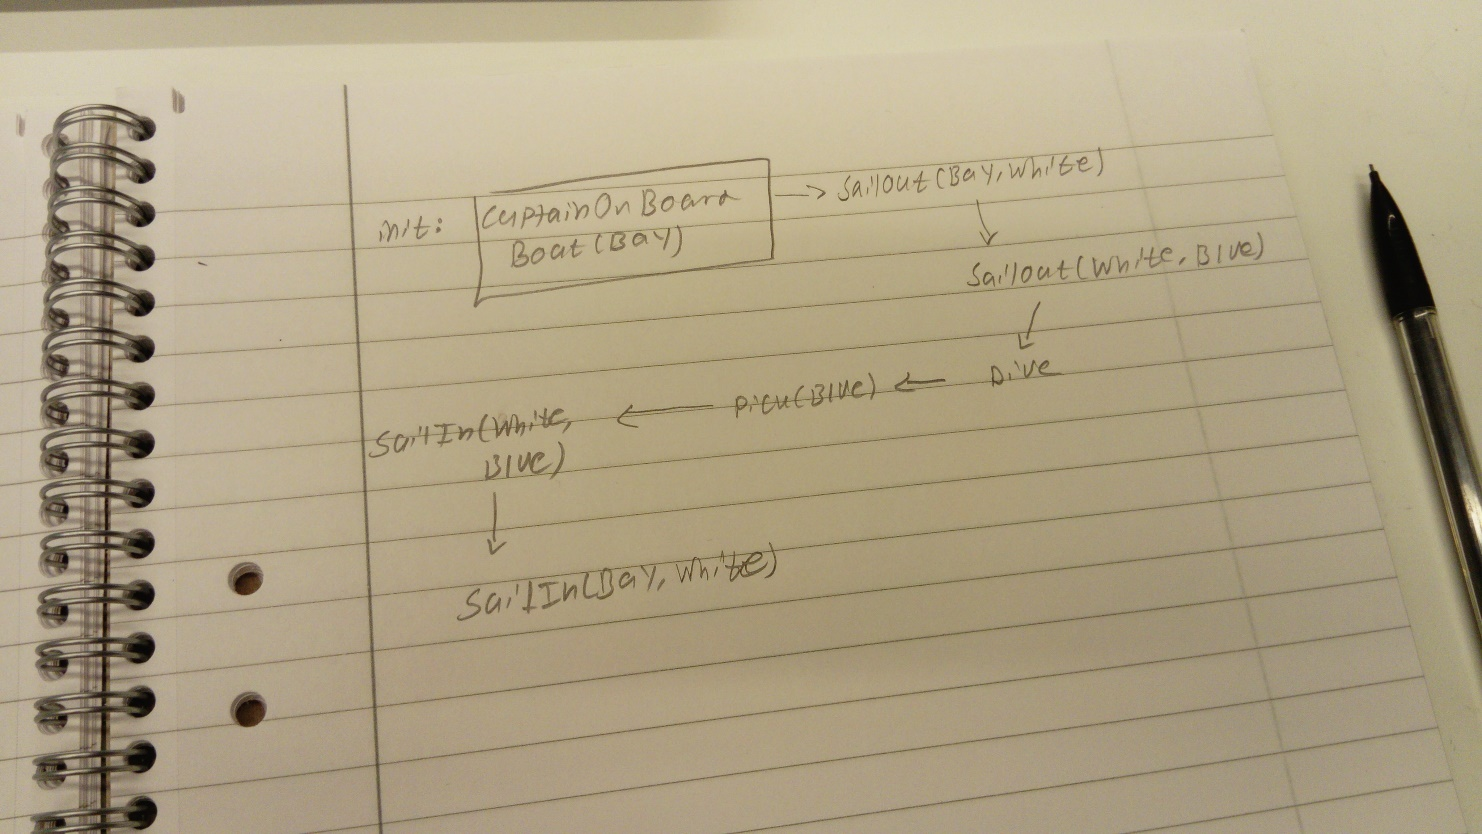 init:
CaptainOnBoard
Boat(Bay)
SailOut(Bay, White)
Sailout(White, Blue)
Dive
Pick(Blue)
SailIn(White,
Blue)
SailIn(Bay, White)